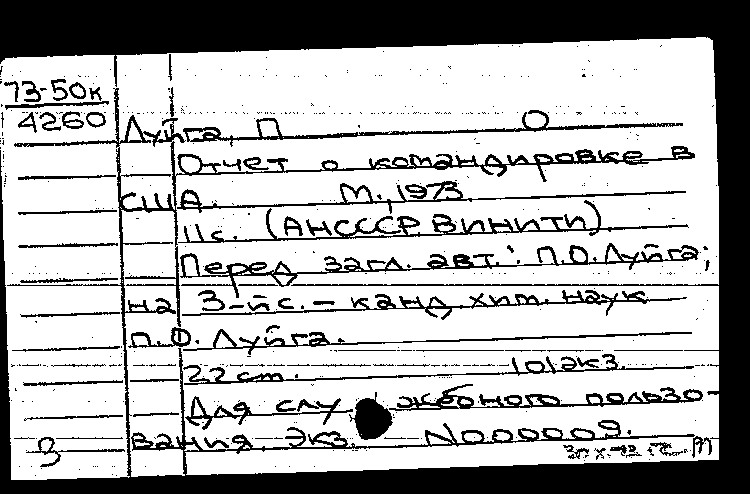 73-50к
4260
Луйга, П О
Отчет о командировке в
США. М., 1973.
11с. (АНСССР ВИНИТИ).
Перед загл. авт.: П.О. Луйга;
на 3-йс. – канд. хим. наук
П.О. Луйга.
22 cm. 101экз.
Для служебного пользо-
вания. Экз. N000009.
3